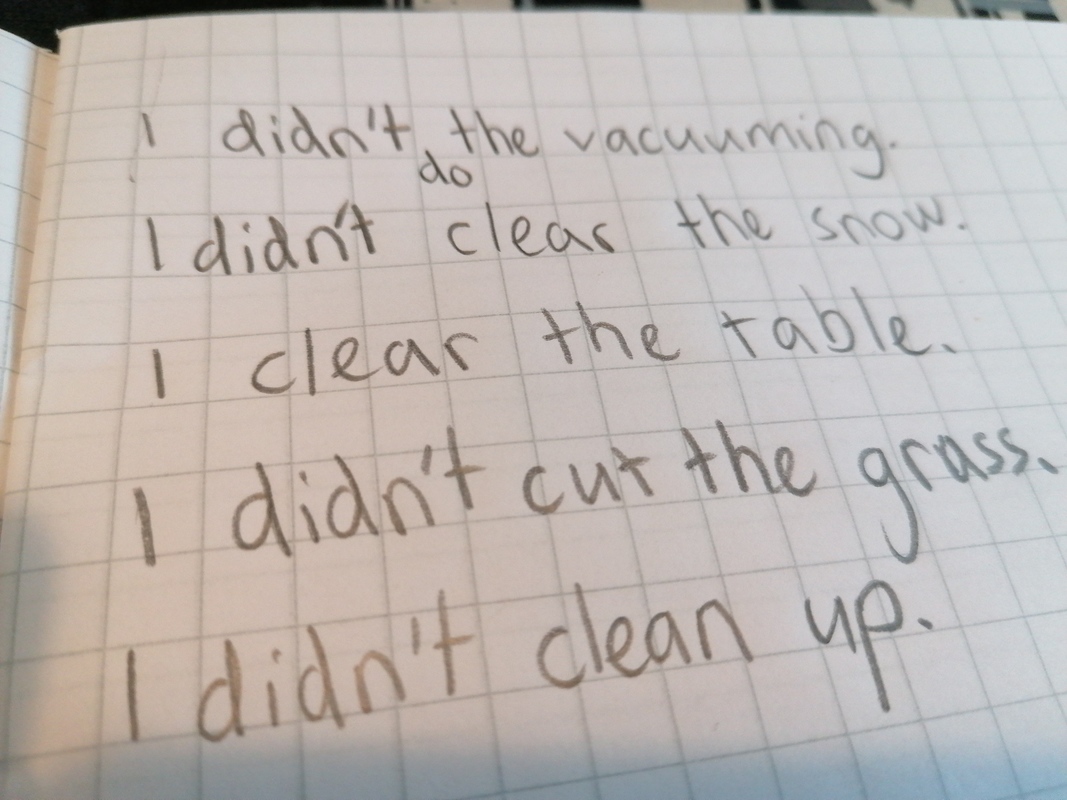 I didn't the vacuuming.
do
I didn't clear the snow.
I clear the table.
I didn't cut the grass.
I didn't clean up.